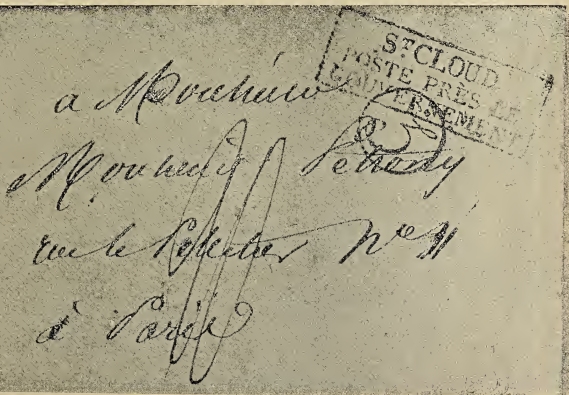 ST CLOUD
POSTE PRÈS LE
GOUVERNEMENT
a Monsieur
Monsieur
rue le Peletier No 11
à Paris